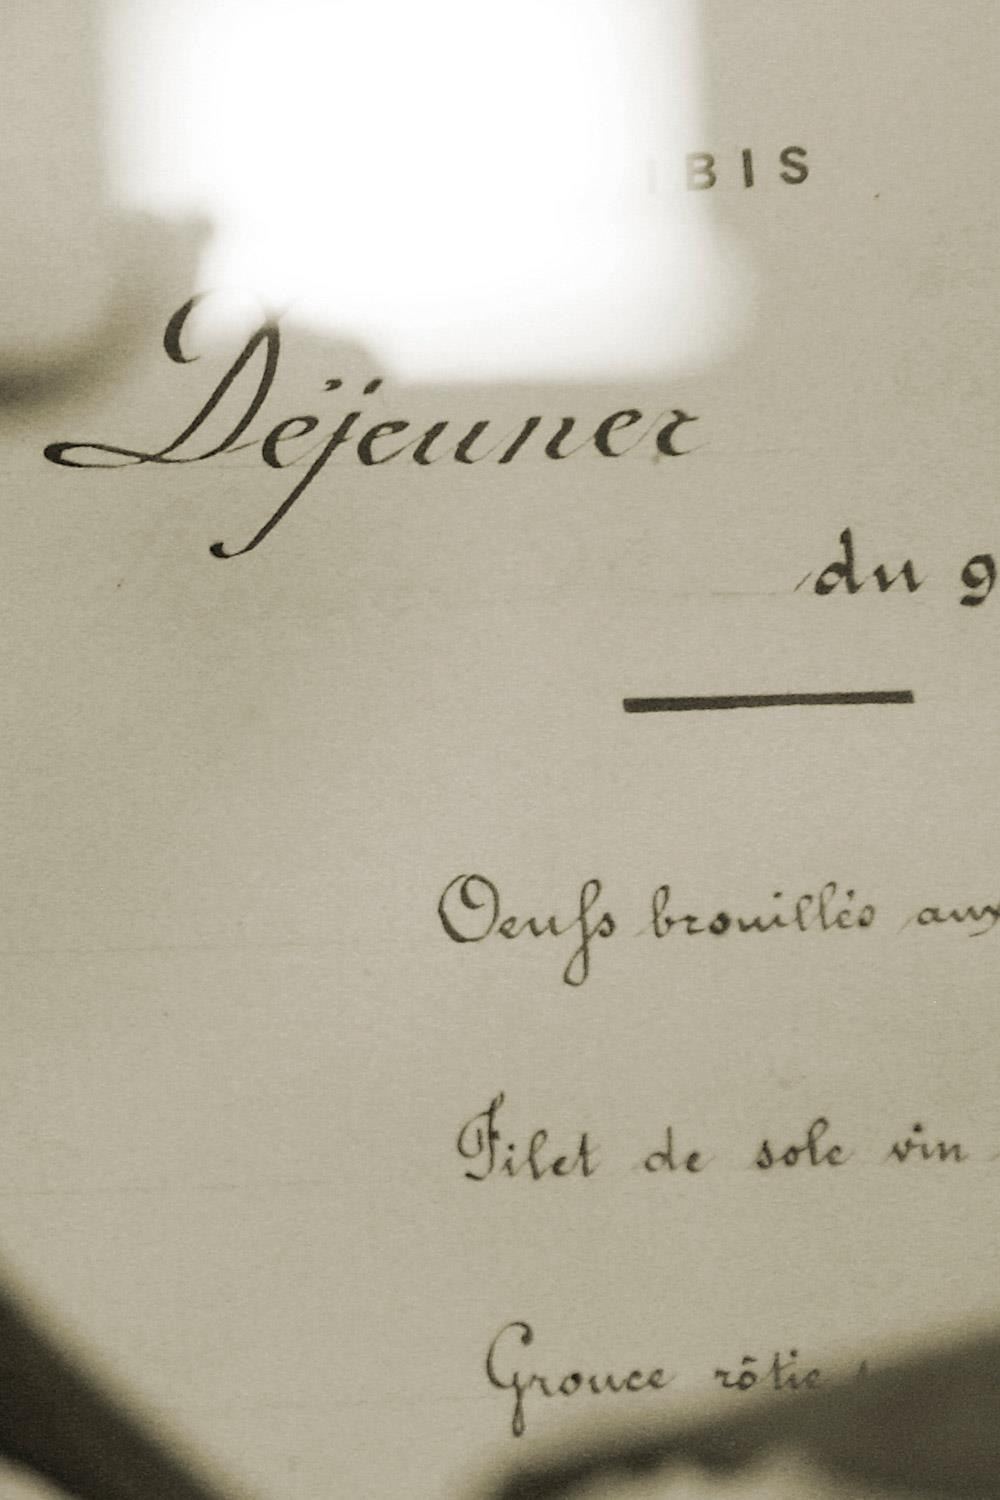 IBIS
Déjeuner
du 9
Oeufs brouillés aux
Filet de sole vin
Grouce rôtie